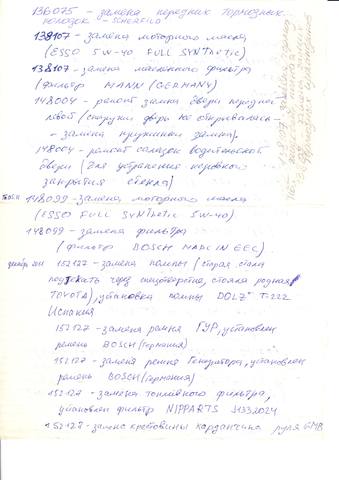 136075 - замена передних тормозных
колодок - SCHERFILD
138107 - замена моторного масла
(ESSO 5W-40 FULL SYNTHETIC)
138107 - замена масленного фильтра
(фильтр MANN (GERMANY)
148004 - ремонт замка двери передней
левой (снаружи дверь не открывалась -
- замена пружинки замка).
148004 - ремонт салазок водительской
двери (для устранения неровного
закрытия стекла)
148099 - замена моторного масла
(ESSO FULL SYNTHETIC 5W-40)
148099 - замена фильтра
(фильтр BOSCH MADE IN EEC)
декабрь 2011 152127 - замена помпы (старая стала
подтекать через спецотверстие, стояла родная
TOYOTA), установка помпы DOLZ T-222
Испания
152127 - замена ремня ГУР, установлен
ремень BOSCH (Германия)
152127 - замена ремня Генератора, установлен
ремень BOSCH (Германия)
152127 - замена топливного фильтра,
установлен фильтр NIPPARTS J1332024
152127 - замена крестовины карданчика руля GMB